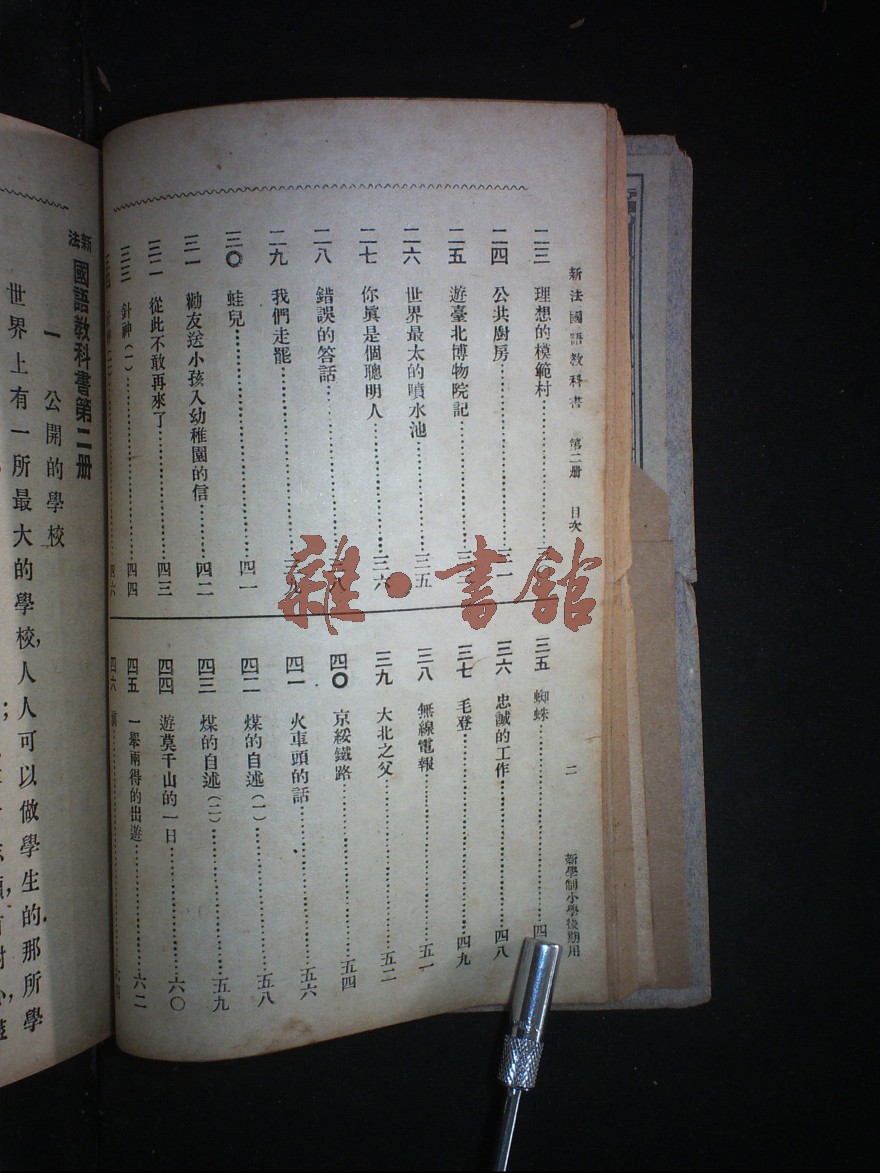 新法國語教科書 第二册 目次 二 新學制小學後期用
二三 理想的模範村
二四 公共廚房
二五 遊臺北博物院記
二六 世界最大的噴水池 三五
二七 你眞是個聰明人 三六
二八 錯誤的答話
二九 我們走罷
三〇 蛙兒 四一
三一 勸友送小孩入幼稚園的信 四二
三二 從此不敢再來了 四三
三三 針神(一) 四四
四六
三五 蜘蛛 四
三六 忠誠的工作 四八
三七 毛登 四九
三八 無線電報 五一
三九 大北之父 五二
四〇 京綏鐵路 五四
四一 火車頭的話 五六
四二 煤的自述(一) 五八
四三 煤的自述(二) 五九
四四 遊莫干山的一日 六〇
四五 一舉兩得的出遊 六二
四六
新法 國語教科書第二册
一 公開的學校
世界上有一所最大的學校,人人可以做學生的.那所學
雜·書館